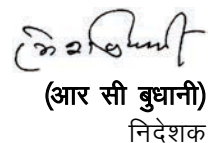 (आर सी बुधानी)
निदेशक